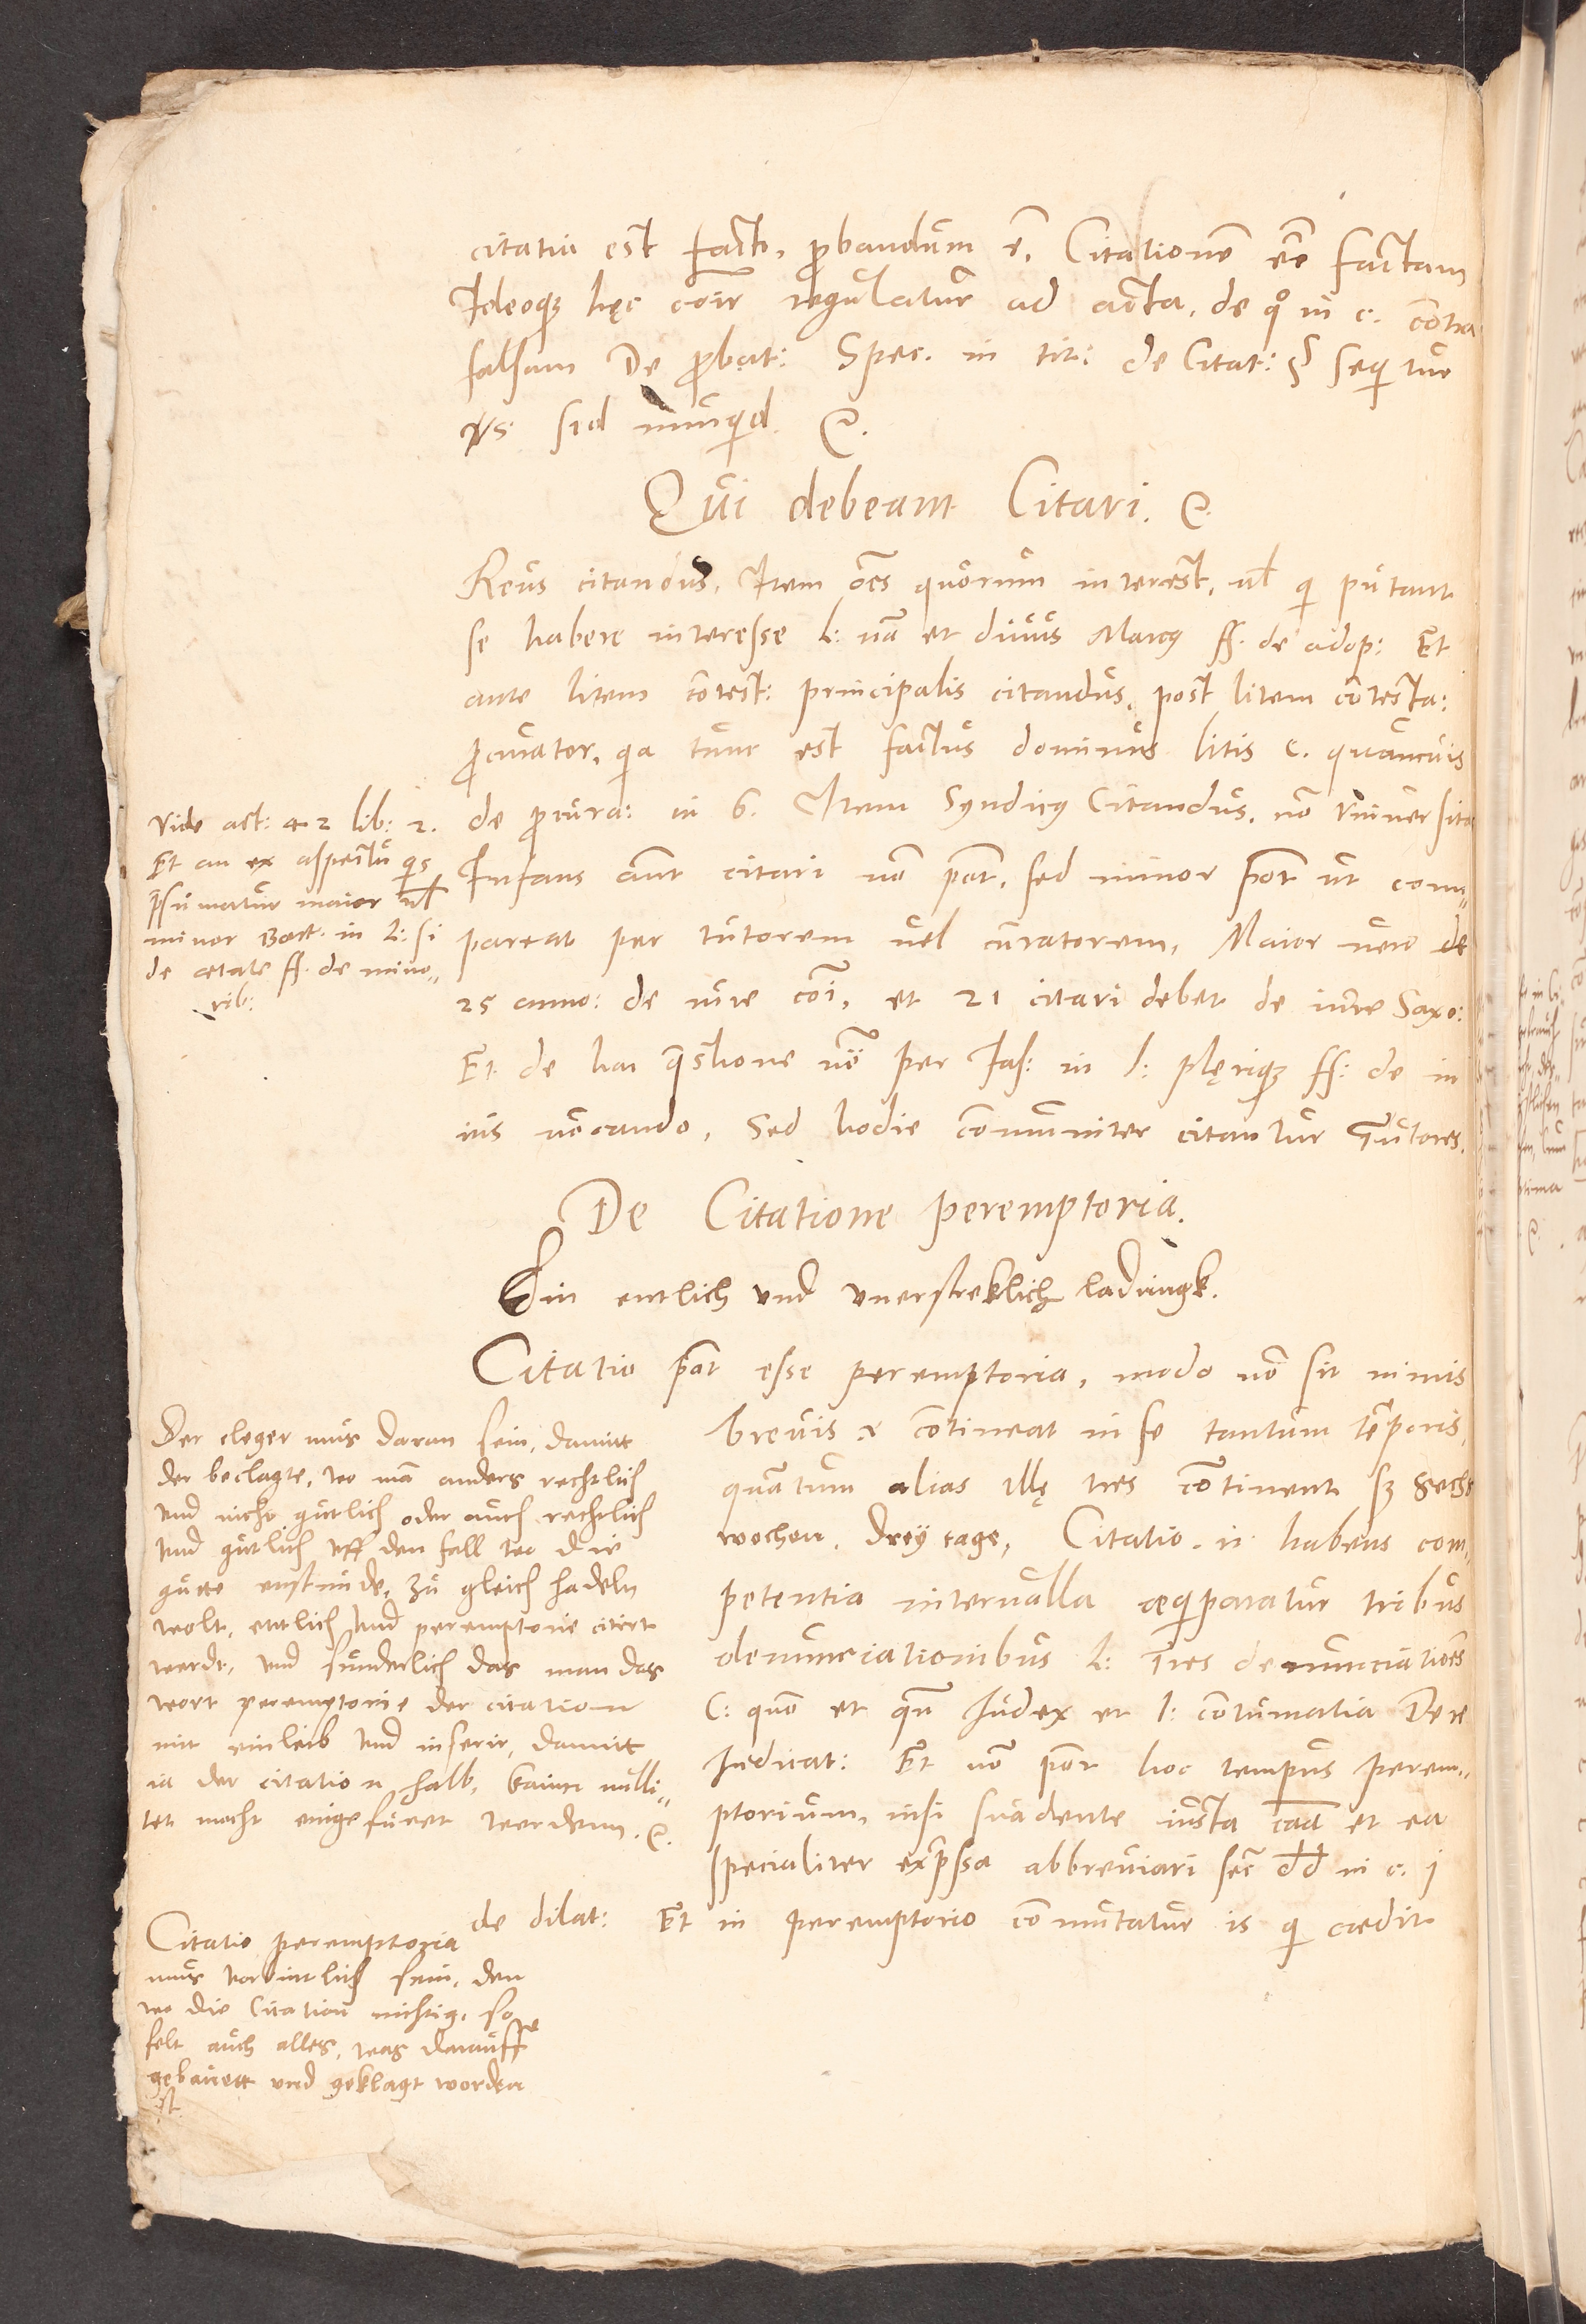 citatio est facta, ꝓbandum ē, Citationē eē factam
Ideoqꝫ hęc coīr regulatur ad acta, de qͦ in c. contra
falsam De ꝓbat: Spec. in tit: de Citat: § seqͥtur
sed nunqͥd ꝛc.
Qui debeant Citari. ꝛc.
Reus citandus, Item oēs quorum interest, ul̄ qͥ putant
se habere interesse l: nā et diuus Marcꝰ ff. de adop: Et
ante litem cōtest: principalis citandus, post litem cōtesta:
ꝓcurator, qͥa tunc est factus dominus litis c. quamuis
de ꝓcura: in 6. Item Syndicꝰ Citandus, nō vniuersitas
Vide act: 42 lib: 2.
Et an ex aspectu qͥs
p̄sumatur maior ul̄
minor Bart. in L: si
de ætate ff. de mino-
rib:
Infans aūt citari nō pōt, sed minor pōt ut com-
pareat per tutorem uel curatorem, Maior uero
25 anno: de iure cōi, et 21 citari debet de iure Saxo:
Et de hac q̄stione per Jas: in l: plęriqꝫ ff: de in
ius uocando, Sed hodie cōmuniter citantur Tutores.
De Citatione peremptoria.
Ein entlich vnd vnerstreklich ladungk.
Citatio pōt esse peremptoria, modo nō sit nimis
breuis & cōtineat in se tantum tēporis,
quātum alias illę tres cōtinent sꝫ Sechs
wochen, drey tage, Citatio n. habens com-
petentia interualla æqͥparatur tribus
denunciationibus L: Tres denunciatiōes
C: quō et qn̄ Iudex et l: cōtumatia De re
Iudicat: Et nō pōt hoc tempus perem-
ptorium, nisi suadente iusta cāa et ea
specialiter exp̄ssa abbreuiari sec̄ dd in c. j
de dilat: Et in peremptorio cōmutatur is qͥ cædit
Der cleger mus daran sein, damitt
der beclagte, wo mā anders rechtlich
vnd nicht gütlich oder auch rechtlich
vnd gütlich vff den fall wo die
gütte enstünde, zu gleich hādeln
wolt, entlich vnd peremptorie citirt
werde, vnd sunderlich das man das
wort peremptorie der citation
mit einleib vnd inserir, damitt
ia der citation halb, kaine nulli-
tet mocht eingefüret werdenn. ꝛc.
Citatio peremptoria
mus vorbintlich sein, den
wo die Citation nichtig, so
felt auch alles, was darauff
gebauett vnd geklagt worden
ist.